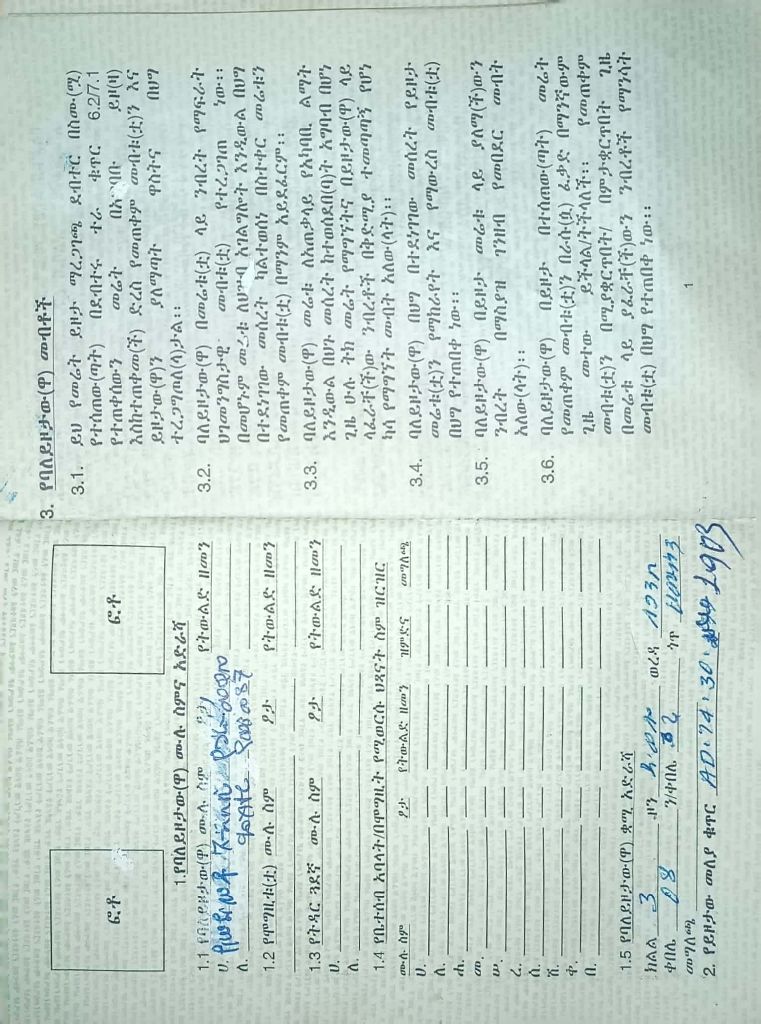 ፎቶ
ፎቶ
1.የባለይዞታው(ዋ) ሙሉ ስምና አድራሻ
1.1 የባለይዞታው(ዋ) ሙሉ ስም ፆታ የትውልድ ዘመን
ሀ.
ለ.
1.2 የሞግዚቱ(ቷ) ሙሉ ስም ፆታ የትውልድ ዘመን
1.3 የትዳር ጓደኛ ሙሉ ስም ፆታ የትውልድ ዘመን
ሀ.
ለ.
1.4 የቤተሰብ አባላት/በሞግዚት የሚወርሱ ህጻናት ስም ዝርዝር
ሙሉ ስም ፆታ የትውልድ ዘመን ዝምድና መግለጫ
ሀ.
ለ.
ሐ.
መ.
ሠ.
ረ.
ሰ.
ሸ.
ቀ.
በ.
1.5 የባለይዞታው(ዋ) ቋሚ አድራሻ
ክልል 3 ዞን ወረዳ
ቀበሌ 08 ን/ቀበሌ ጎጥ
መግለጫ
2. የይዞታው መለያ ቁጥር
3. የባለይዞታው(ዋ) መብቶች
3.1. ይህ የመሬት ይዞታ ማረጋገጫ ደብተር በስሙ(ሟ)
የተሰጠው(ጣት) በደብተሩ ተራ ቁጥር 6.2/7.1
የተጠቀሰውን መሬት በአግባቡ ይዞ(ዛ)
እስከተጠቀመ(ች) ድረስ የመጠቀም መብቱ(ቷ)ን እና
ይዞታው(ዋ)ን ያለማጣት ዋስትና በህግ
ተረጋግጦለ(ላ)ታል።
3.2. ባለይዞታው(ዋ) በመሬቱ(ቷ) ላይ ንብረት የማፍራት
ህገመንግስታዊ መብቱ(ቷ) የተረጋገጠ ነው።
በመሆኑም መሬቱ ለህዝብ አገልግሎት እንዲውል በህግ
በተደነገገው መሰረት ካልተወሰነ በስተቀር መሬቱን
የመጠቀም መብቱ(ቷ) በማንም አይደፈርም።
3.3. ባለይዞታው(ዋ) መሬቱ ለአጠቃላይ የአካባቢ ልማት
እንዲውል በህጉ መሰረት ከተወሰደበ(ባ)ት አግባብ በሆነ
ጊዜ ሁሉ ትክ መሬት የማግኘትና በይዞታው(ዋ) ላይ
ላፈራቸ(ች)ው ንብረቶች በቅድሚያ ተመጣጣኝ የሆነ
ካሳ የማግኘት መብት አለው(ላት)።
3.4. ባለይዞታው(ዋ) በህግ በተደነገገው መሰረት የይዞታ
መሬቱ(ቷ)ን የማከራየት እና የማውረስ መብቱ(ቷ)
በህግ የተጠበቀ ነው።
3.5. ባለይዞታው(ዋ) በይዞታ መሬቱ ላይ ያለማ(ች)ውን
ንብረት በማስያዝ ገንዘብ የመበደር መብት
አለው(ላት)።
3.6. ባለይዞታው(ዋ) በይዞታ በተሰጠው(ጣት) መሬት
የመጠቀም መብቱ(ቷ)ን በራሱ(ሷ) ፈቃድ በማንኛውም
ጊዜ መተው ይችላል/ትችላለች። የመጠቀም
መብቱ(ቷ)ን በሚያቋርጥበት/ በምታቋርጥበት ጊዜ
በመሬቱ ላይ ያፈራቸ(ች)ውን ንብረቶች የማንሳት
መብቱ(ቷ) በህግ የተጠበቀ ነው።
1